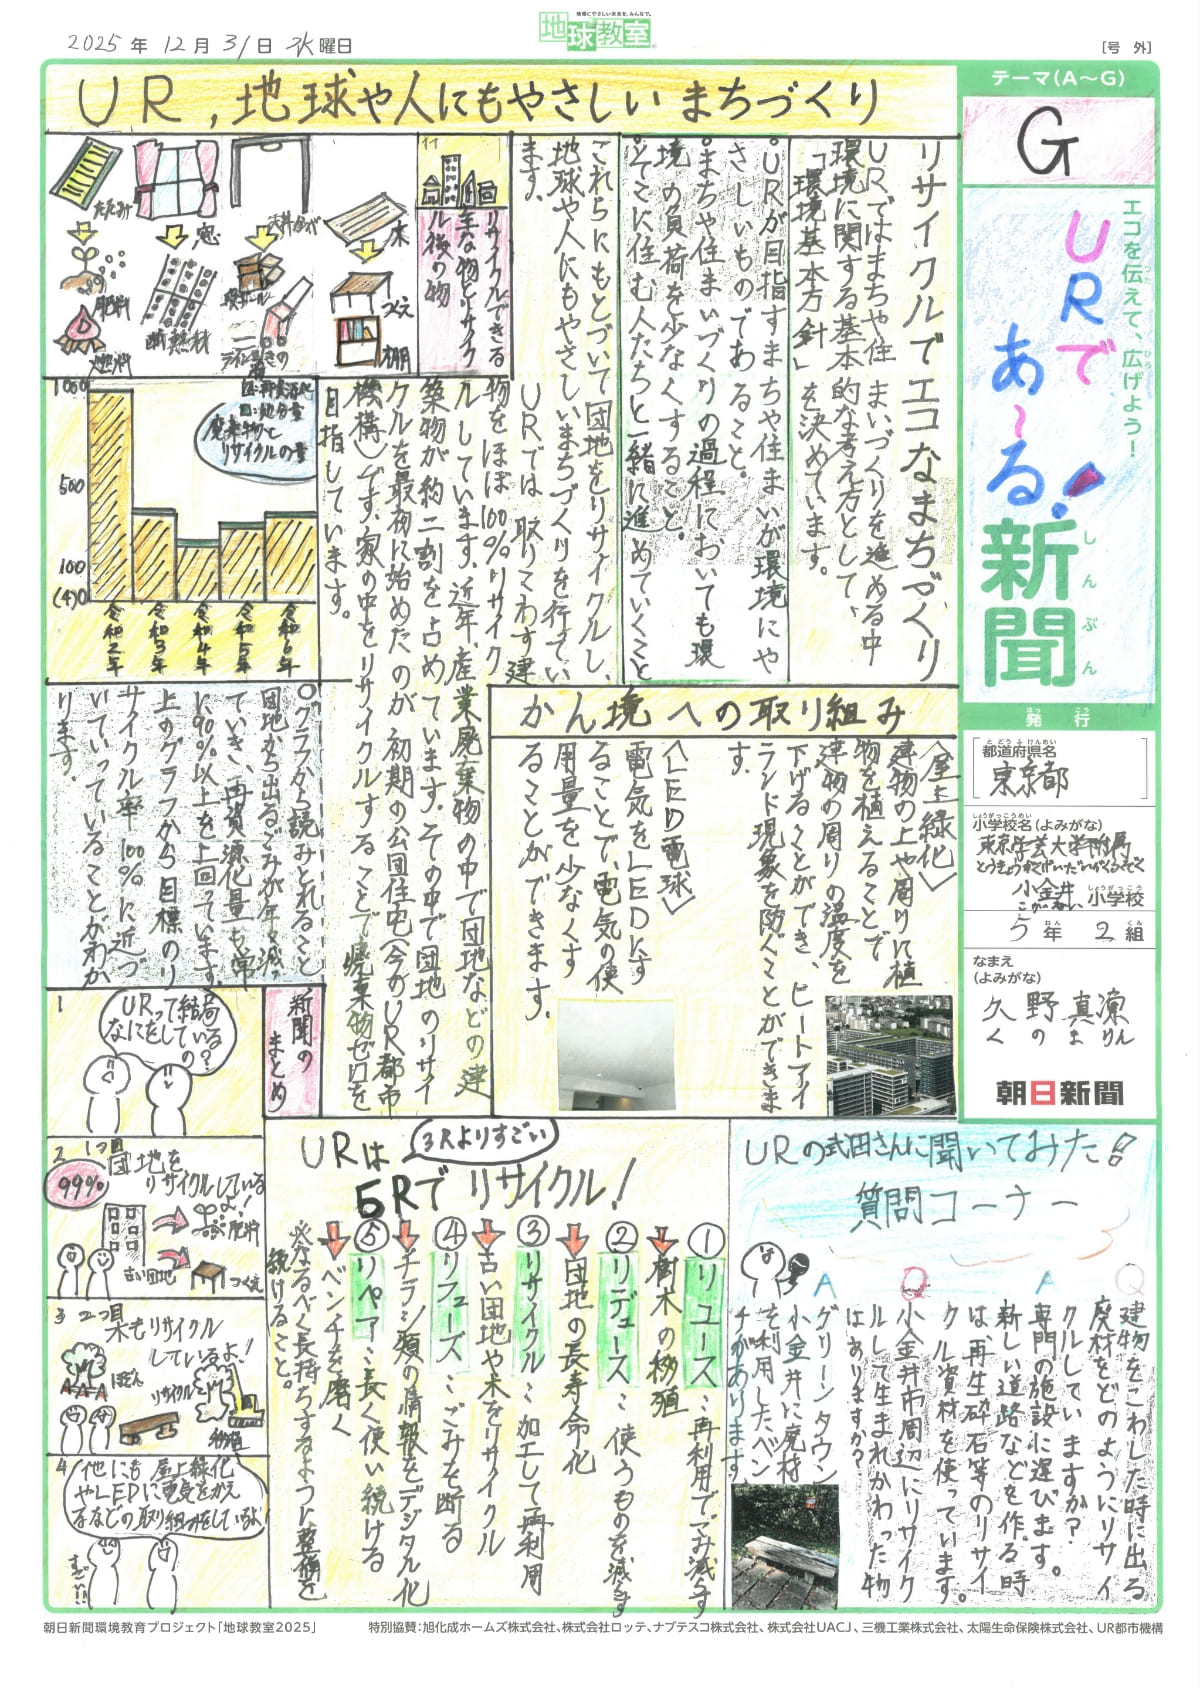 地球にやさしい未来を、みんなで。
地球教室
2025年12月31日 水曜日
[号 外]
UR,地球や人にもやさしいまちづくり
テーマ(A〜G)
G
エコを伝えて、広げよう!
URで
あ〜る!
新聞
しんぶん
発行
はっこう
都道府県名
とどうふけんめい
東京都
小学校名(よみがな)
しょうがっこうめい
東京学芸大学附属
とうきょうがくげいだいがくふぞく
小金井
こがねい
小学校
しょうがっこう
5年2組
ねん
くみ
なまえ
(よみがな)
久野真凜
くのまりん
朝日新聞
リサイクルでエコなまちづくり
URではまちや住まいづくりを進める中
環境に関する基本的な考え方として、
「環境基本方針」を決めています。
。URが目指すまちや住まいが環境にや
さしいものであること。
。まちや住まいづくりの過程においても環
境の負荷を少なくすること。
。そこに住む人たちと一緒に進めていくこと
これらにもとづいて団地をリサイクルし、
地球や人にもやさしいまちづくりを行ってい
ます。
URでは、取りこわす建
物をほぼ100%リサイク
ルしています。近年、産業廃棄物の中で団地などの建
築物が約二割を占めています。その中で団地のリサイ
クルを最初に始めたのが、初期の公団住宅(今のUR都市
機構)です。家の中をリサイクルすることで廃棄物ゼロを
目指しています。
リサイクルできる
主な物とリサイク
ル後の物
たたみ
窓
床
肥料
燃料
断熱材
段ボール
つくえ
棚
1000
500
100
(4)0
令和2年
令和3年
令和4年
令和5年
令和6年
□:再資源化
□:処分量
廃棄物と
リサイクルの量
○グラフから読みとれること
団地から出るごみが年々減っ
ていき、再資源化量も常
に90%以上を上回っています。
上のグラフから目標のリ
サイクル率100%に近づ
いていっていることがわか
ります。
かん境への取り組み
〈屋上緑化〉
建物の上や周りに植
物を植えることで
建物の周りの温度を
下げることができ、ヒートアイ
ランド現象を防ぐことができま
す。
〈LED電球〉
電気をLEDにす
ることで電気の使
用量を少なくす
ることができます。
新聞の
まとめ
1
URって結局
なにをしている
の?
2
1つ目
99%
団地を
リサイクルしている
よ!
肥料
古い団地
つくえ
3
2つ目
木もリサイクル
しているよ!
リサイクル
移植
4
他にも屋上緑化
やLEDに電気をかえ
るなどの取り組みをしているよ!
すごい!!
URは
3Rよりすごい
5Rでリサイクル!
①リユース:再利用でごみ減らす
樹木の移殖
②リデュース:使うものを減らす
団地の長寿命化
③リサイクル:加工して再利用
古い団地や木をリサイクル
④リフューズ:ごみを断る
チラシ類の情報をデジタル化
⑤リペア:長く使い続ける
ベンチを磨く
※なるべく長持ちするように整備を
続けること。
URの式田さんに聞いてみた!
質問コーナー
Q
建物をこわした時に出る
廃材をどのようにリサイ
クルしていますか?
A
専門の施設に運びます。
新しい道路などを作る時
は、再生砕石等のリサイ
クル資材を使っています。
Q
小金井市周辺にリサイク
ルして生まれかわった物
はありますか?
A
グリーンタウン
小金井に廃材
を利用したベン
チがあります。
朝日新聞環境教育プロジェクト「地球教室2025」
特別協賛:旭化成ホームズ株式会社、株式会社ロッテ、ナブテスコ株式会社、株式会社UACJ、三機工業株式会社、太陽生命保険株式会社、UR都市機構